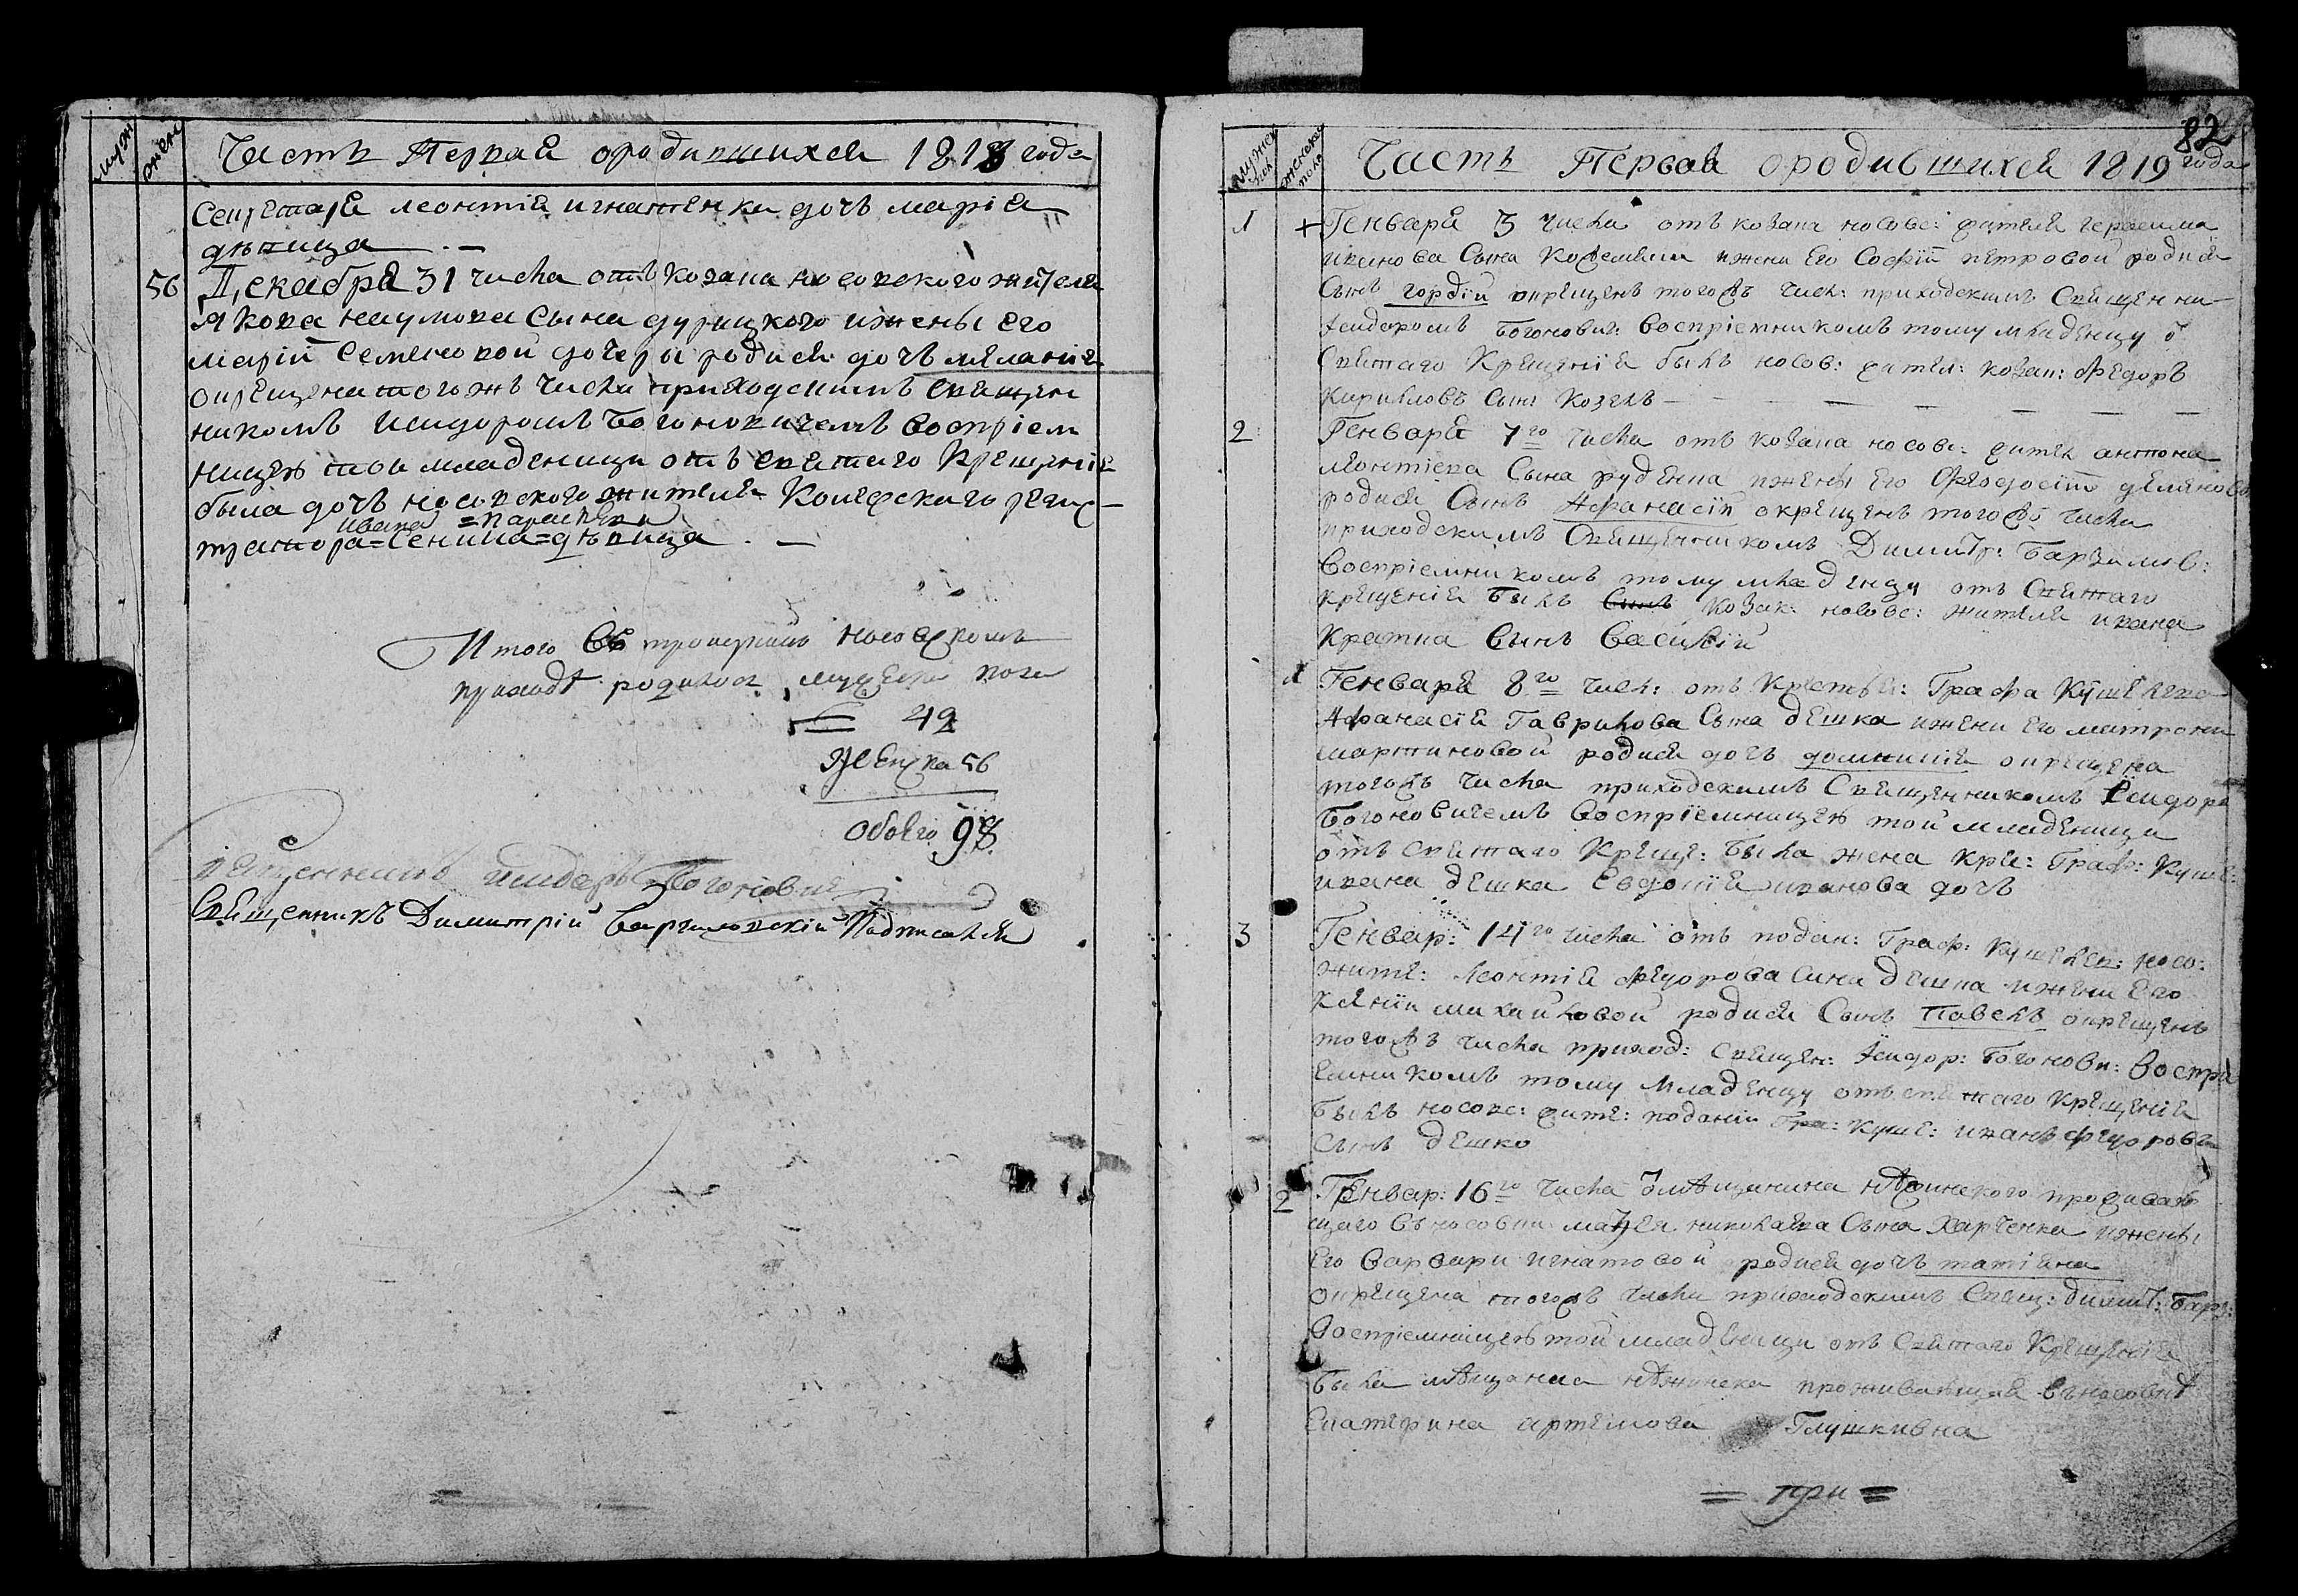 мужен
женс
Часть Первая ородившихся 1818 года
Секретаря леонтія игнатенка дочь марія
дѣвица
56 Декабря 31 числа отъ козака носовского жителя
Якова наумова Сына дурицкого ижены Его
маріи Семеновой дочери родися дочь меланія
окрещена тогожъ числа приходскимъ священ
никомъ исидоромъ Богоновичемъ воспріем
ницею той младеници отъ святаго Крещенія
была дочь носовского жителя Колежского регис-
ивана =параскева
тратора=Сенина=дѣвица
Итого въ троицкомъ носовскомъ
приходѣ родилося мужеска пола
42
Женска 56
Обоего 98
священникъ исидоръ Богоновичъ
Священникъ Димитрій Барзиловскій Подписался
82
мужес пол
женска пола
Часть Первая ородившихся 1819 года
1 + Генваря 5 числа отъ козака носовс: жителя герасима
сына ижены Его Софіи петровой родися
Сынъ гордій окрещенъ тогожъ числ: приходскимъ Священни-
Исидоромъ Богонович: воспріемникомъ тому младенцу о
Святаго Крещенія былъ носов: жител: козак: Федоръ
Кириловъ сынъ Козелъ
2 Генваря 7го числа отъ козака носовс: жител антона
леонтіева Сына руденка ижены Его Феодосіи
родися Сынъ Афанасій окрещенъ тогожъ числа
приходскимъ Священникомъ Димитр: Барзилов:
Воспріемникомъ тому младенцу отъ Святаго
крещенія Былъ козак: носовс: жителя ивана
Сынъ Василій
1 Генваря 8го числ: отъ Крестья: Графа Кушелева
Афанасія Гаврилова Сына дешка ижени Его матрони
мартиновой родися дочь домникія окрещена
тогожъ числа приходскимъ Священникомъ Ісидоро
Богоновичемъ воспріемницею той младеници
отъ святаго Креще: была жена кре: Граф: Куше:
ивана дешка Евдокія иванова дочь
3 Генвар: 14го числа отъ подан: Граф: Кушелев: носо:
жите: леонтія Федорова сина дешка ижени Его
Ксеніи михайловой родися Сынъ Павелъ окрещенъ
тогожъ числа приход: Священ: Ісидор: Богонови: Воспрі
емникомъ тому младенцу отъ святаго крещенія
Былъ носовс: жите: поданій Гра: Куше: иванъ Федоровъ
сынъ дешко
2 Генвар: 16го числа Ѿ мѣщанина нѣжинского проживаю
щаго въ носовки николаева Сына Харченка ижены
Его варвари игнатовой родися дочь татіяна
окрещена тогожъ числа приходскимъ Свящ: димит: Барз:
Воспріемницею той младеници отъ Святаго Крещенія
была мѣщанка нѣжинска проживающая въ носовкѣ
Екатерина артемова Глушкивна
= при =